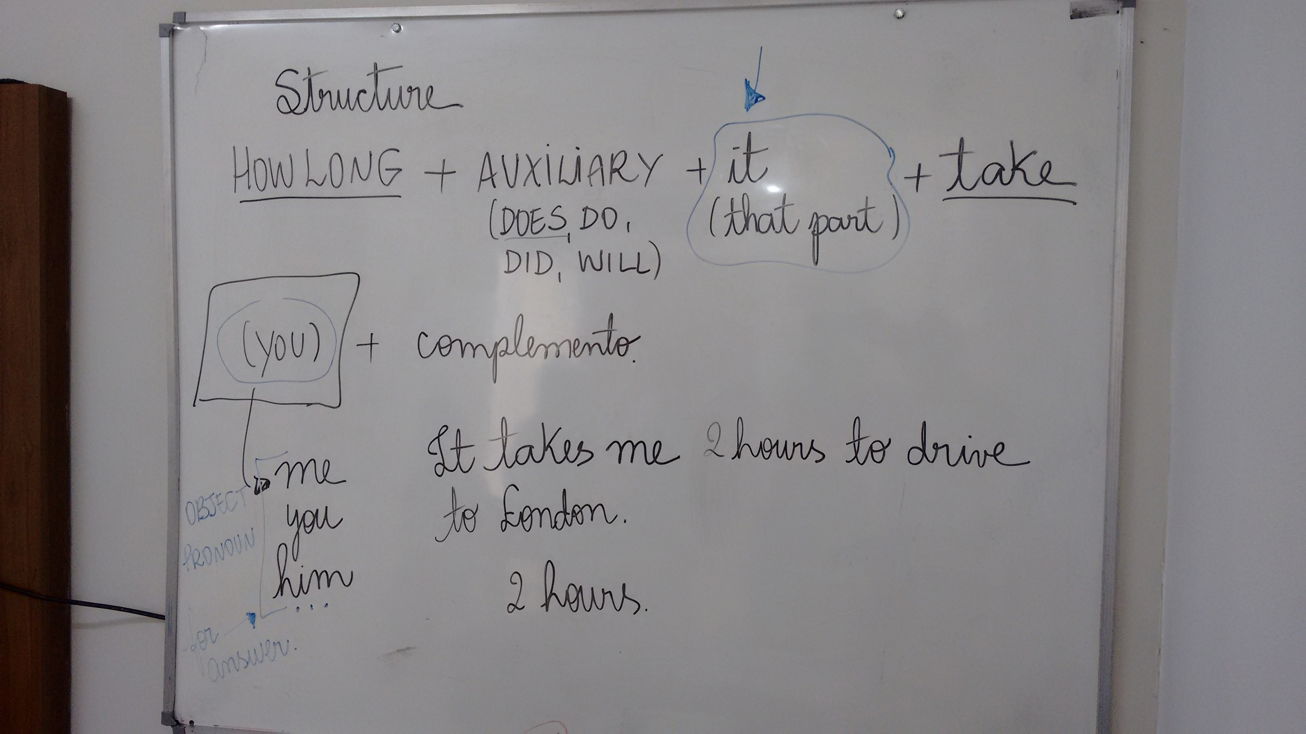 Structure
HOW LONG + AUXILIARY + it + take
(DOES, DO, (that part)
DID, WILL)
(YOU) + complemento.
me
you
him
...
OBJECT
PRONOUN
for
answer.
It takes me 2 hours to drive
to London.
2 hours.